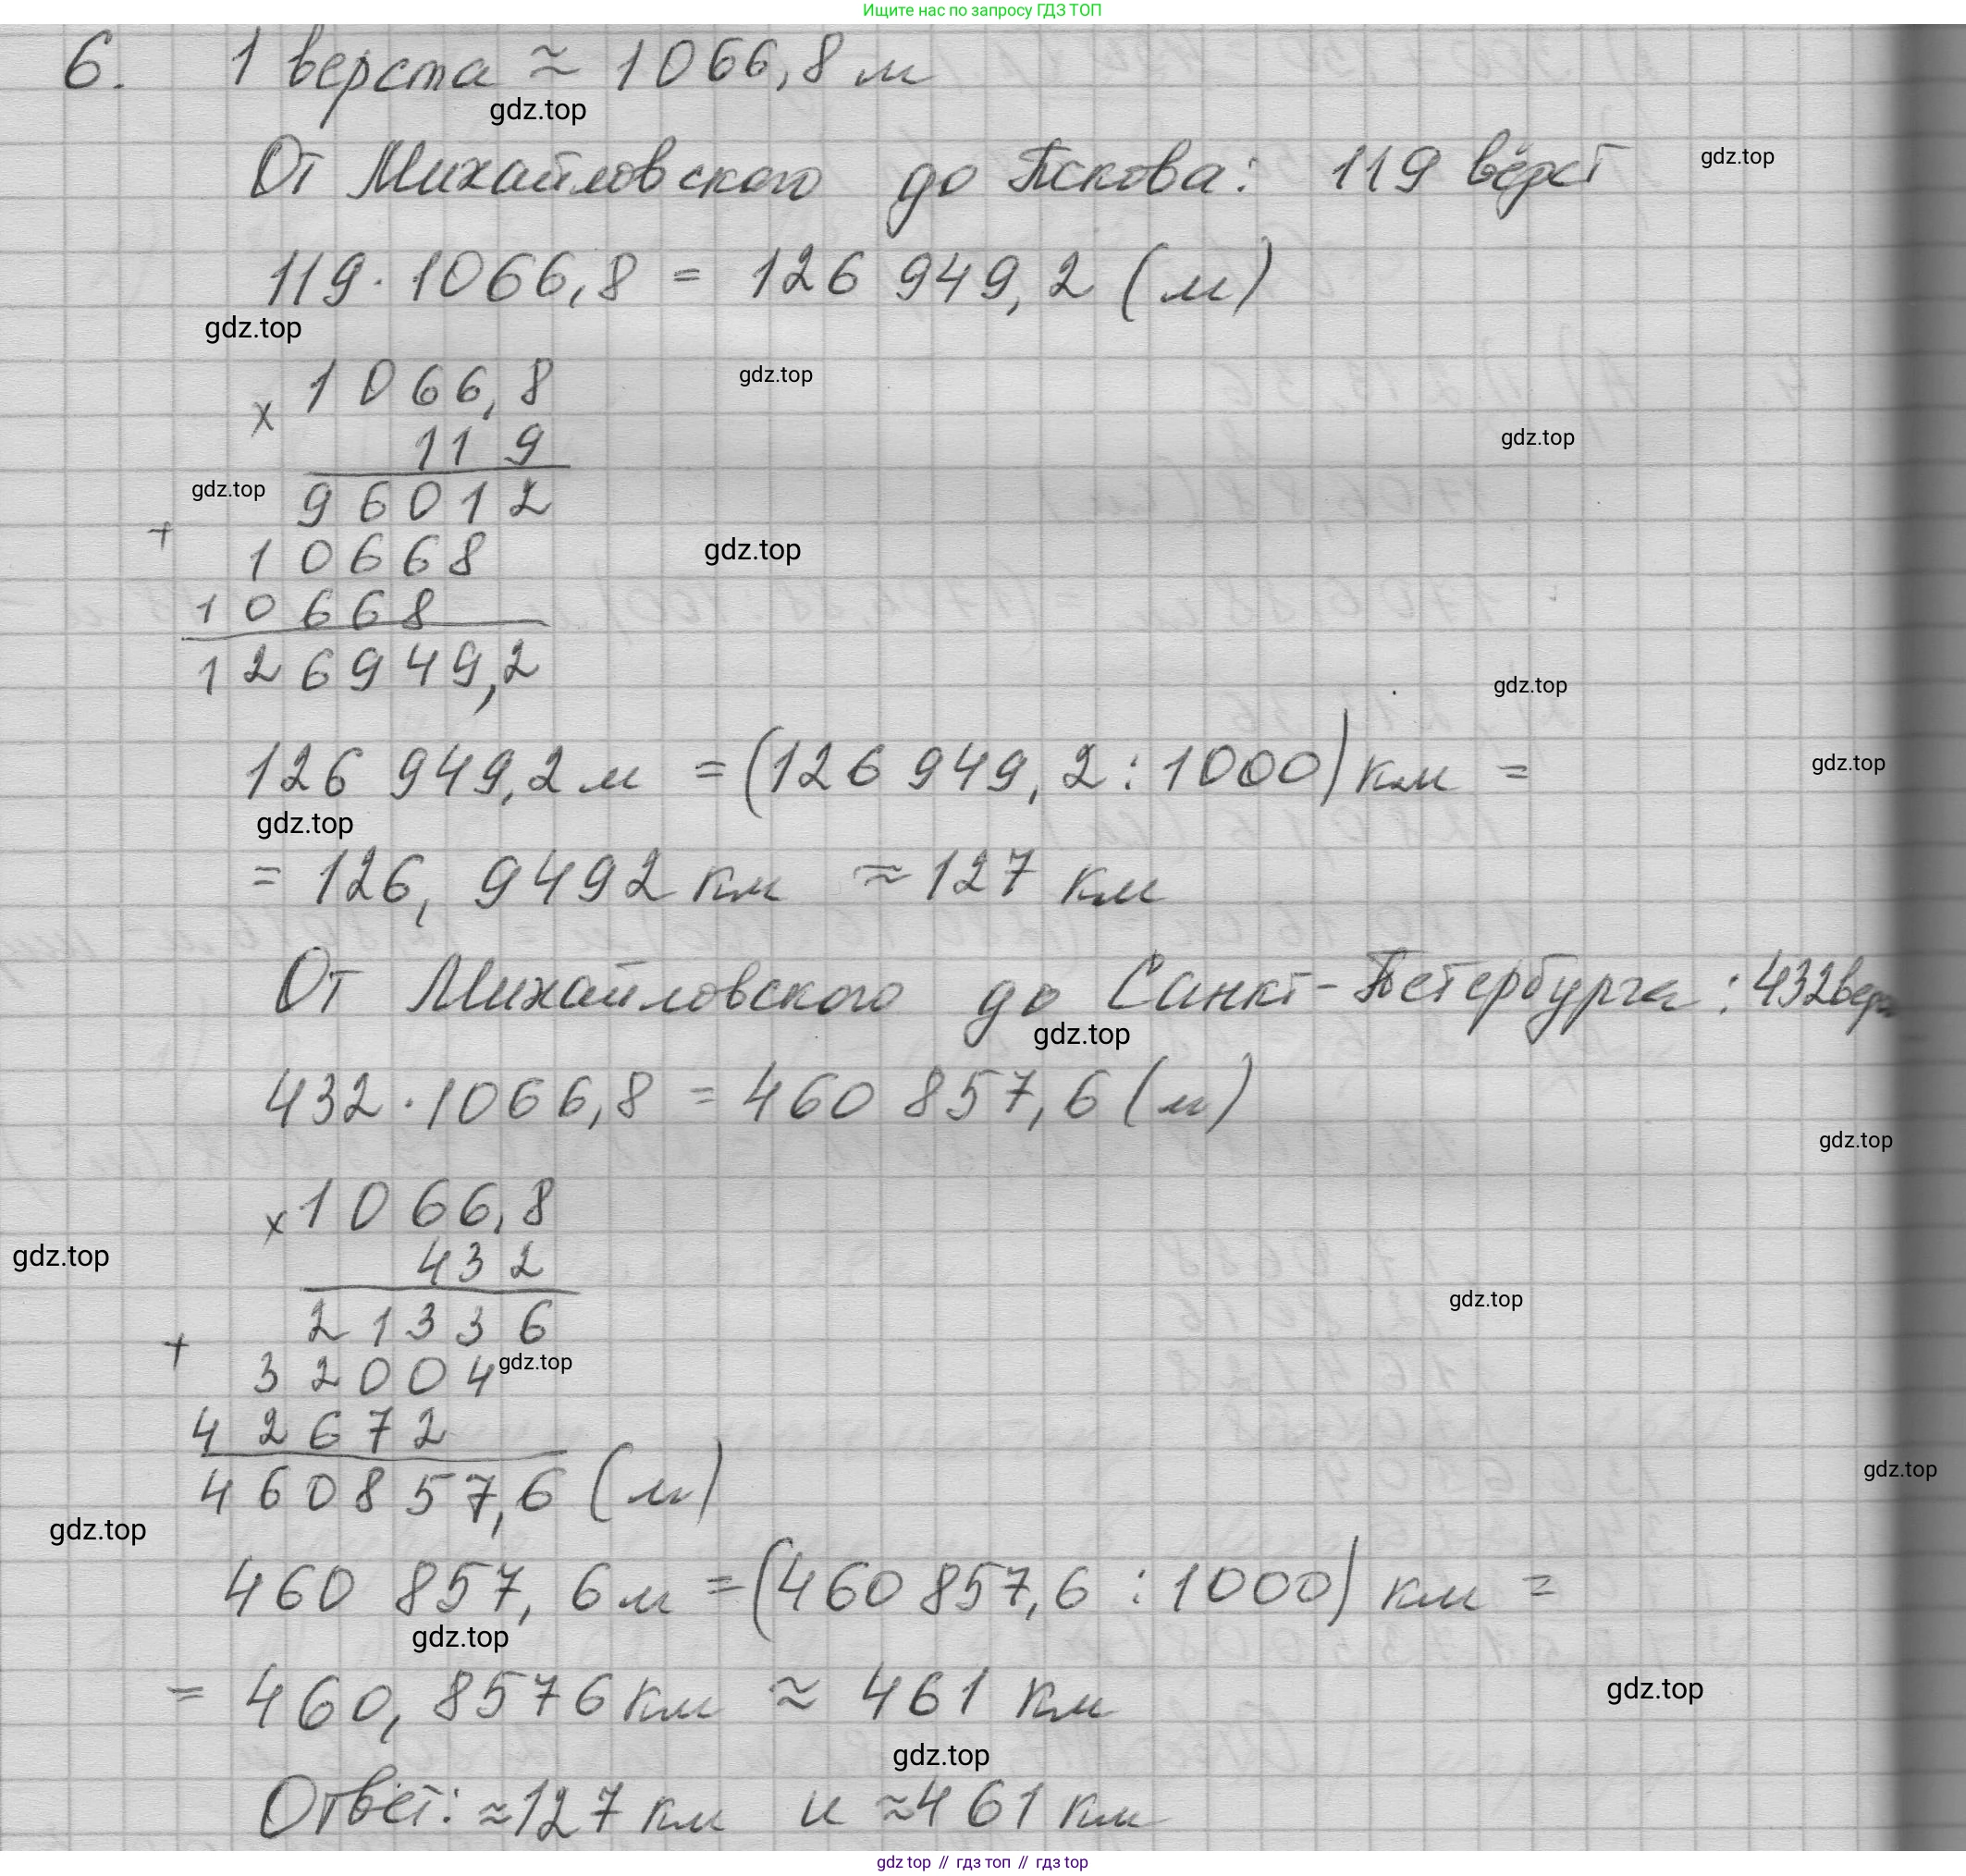 Ищите нас по запросу ГДЗ ТОП
6. 1 верста ≈ 1066,8 м
gdz.top
От Михайловского до Пскова: 119 вёрст
gdz.top
119 · 1066,8 = 126 949,2 (м)
gdz.top
× 1066,8
gdz.top
119
gdz.top
gdz.top
96012
+
10668
gdz.top
10668
126949,2
gdz.top
126 949,2 м = (126 949,2 : 1000) км =
gdz.top
gdz.top
= 126,9492 км ≈ 127 км
От Михайловского до Санкт-Петербурга: 432 вер
gdz.top
432 · 1066,8 = 460 857,6 (м)
gdz.top
× 1066,8
432
gdz.top
gdz.top
21336
+
32004
gdz.top
42672
460857,6 (м)
gdz.top
gdz.top
460 857,6 м = (460 857,6 : 1000) км =
gdz.top
= 460,8576 км ≈ 461 км
gdz.top
gdz.top
Ответ: ≈127 км и ≈461 км
gdz top // гдз топ // гдз top